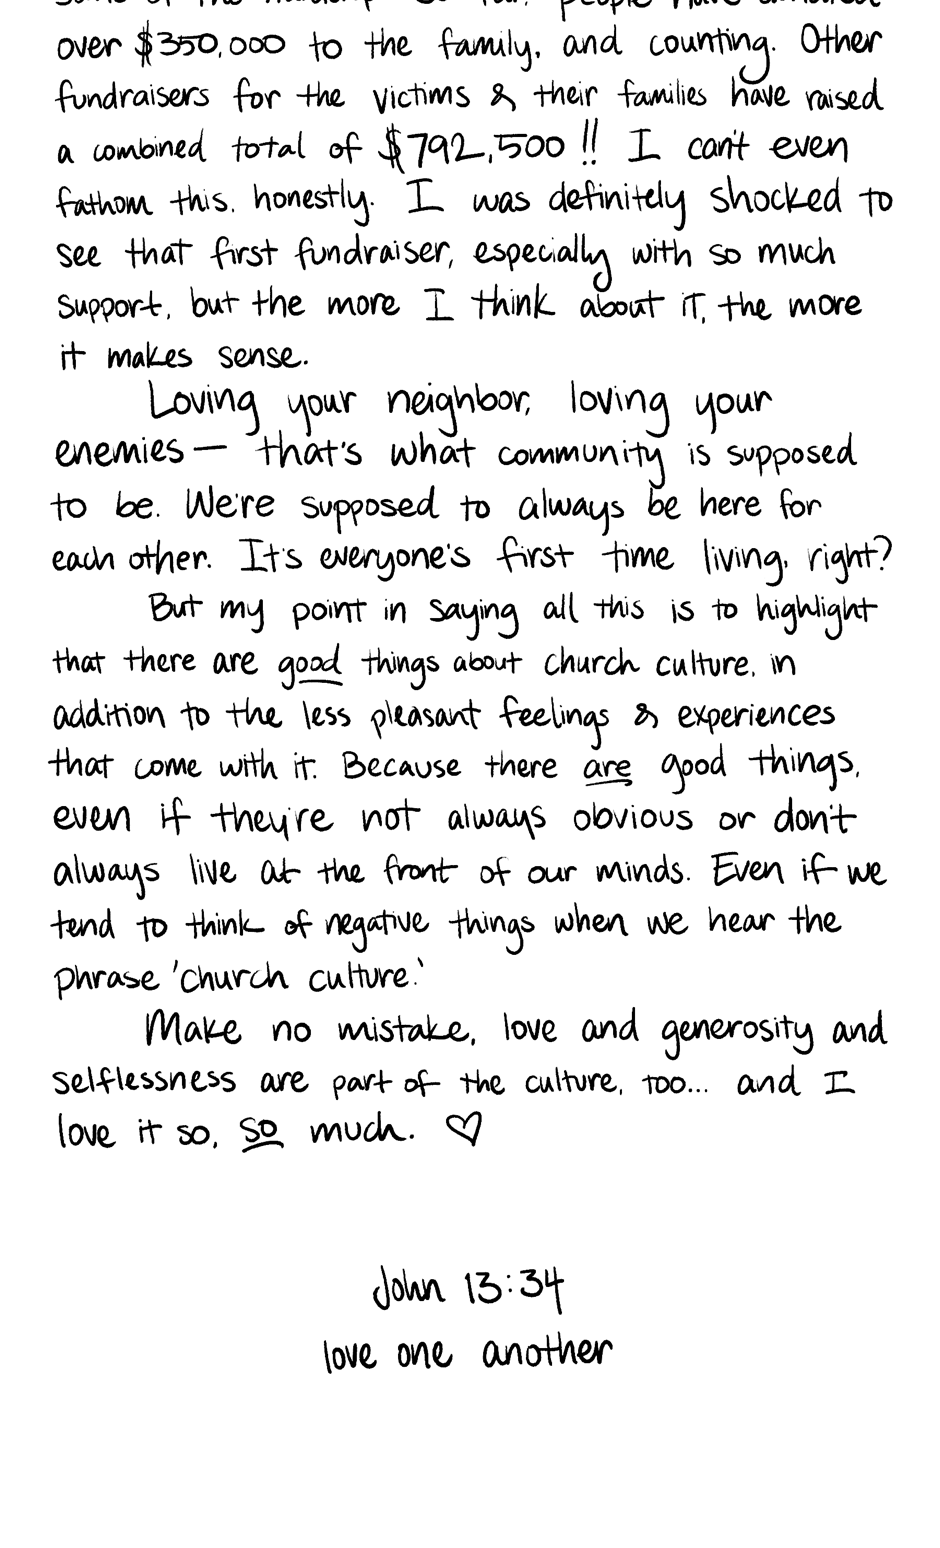 some of the hardship. So far, people have donated
over $350,000 to the family, and counting. Other
fundraisers for the victims & their families have raised
a combined total of $792,500!! I can't even
fathom this, honestly. I was definitely shocked to
see that first fundraiser, especially with so much
support, but the more I think about it, the more
it makes sense.
Loving your neighbor, loving your
enemies— that's what community is supposed
to be. We're supposed to always be here for
each other. It's everyone's first time living, right?
But my point in saying all this is to highlight
that there are good things about church culture, in
addition to the less pleasant feelings & experiences
that come with it. Because there are good things,
even if they're not always obvious or don't
always live at the front of our minds. Even if we
tend to think of negative things when we hear the
phrase 'church culture.'
Make no mistake, love and generosity and
selflessness are part of the culture, too... and I
love it so, so much. ♡
John 13:34
love one another